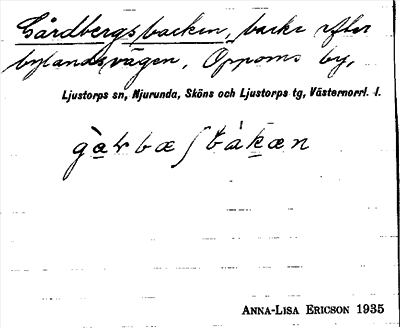 Gårdbergsbacken, backe efter
bylandsvägen, Oppoms by,
Ljustorps sn, Njurunda, Sköns och Ljustorps tg, Västernorrl. l.
ANNA-LISA ERICSON 1935